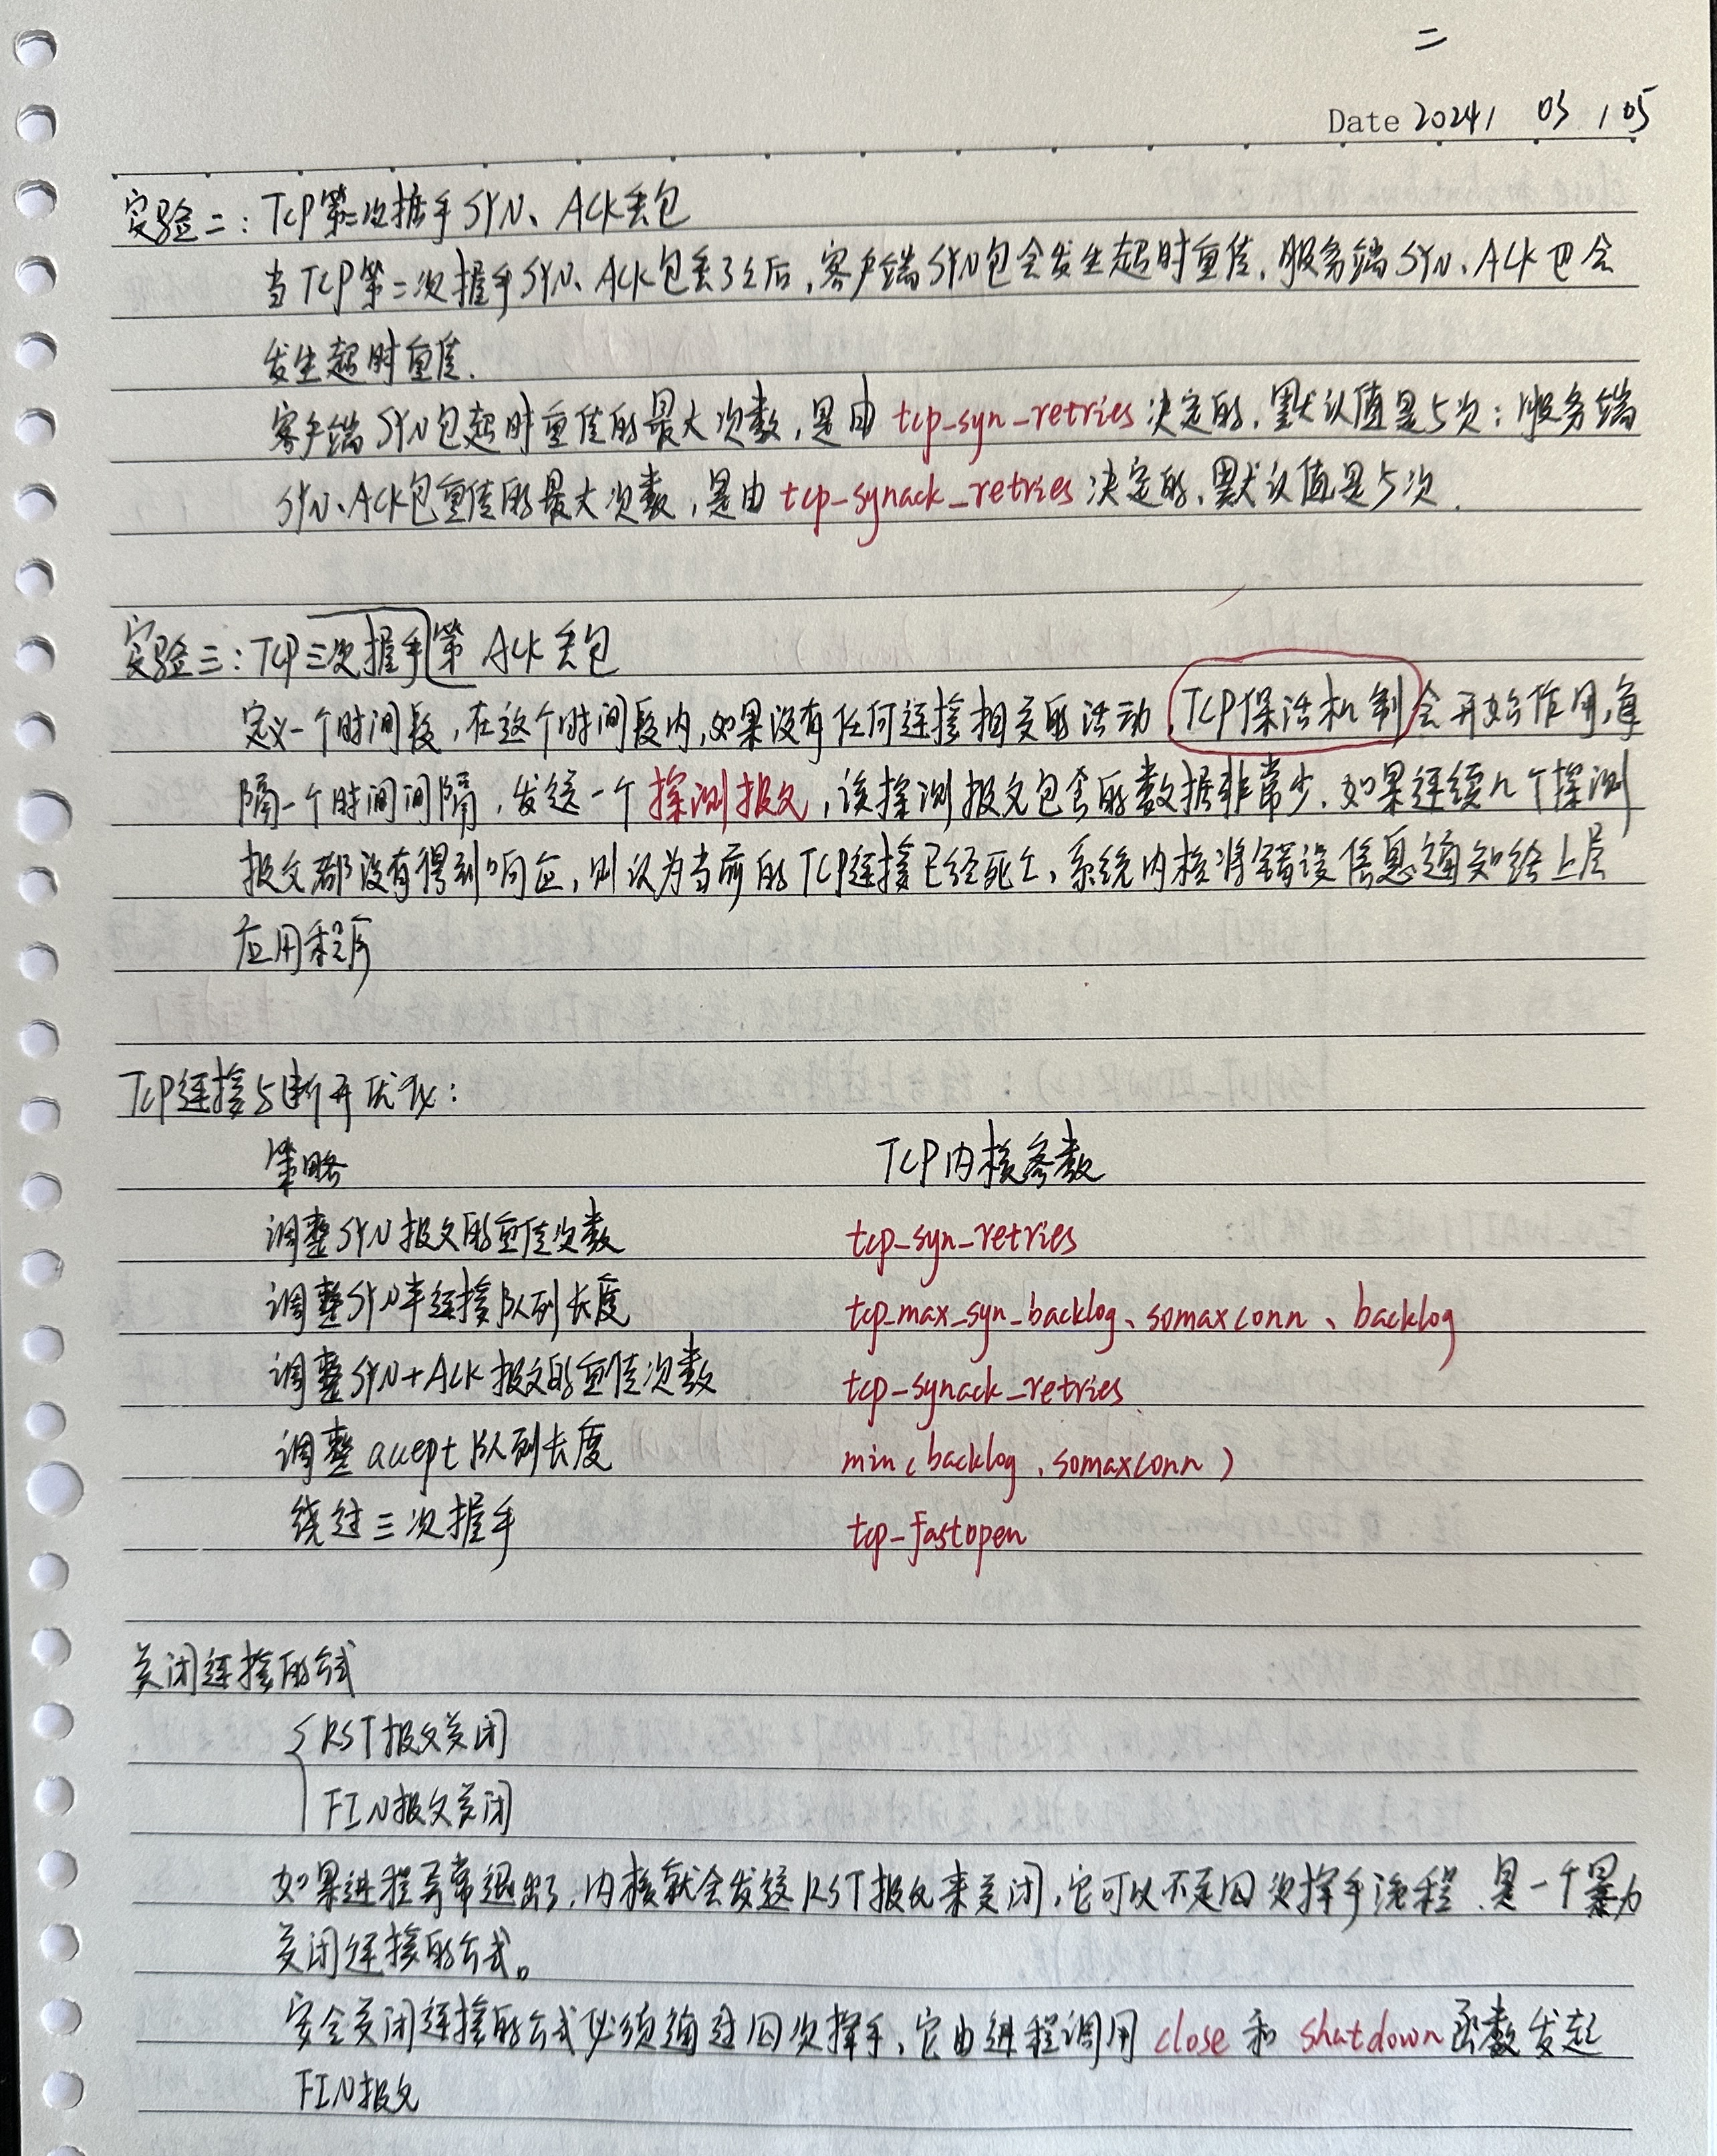 二
Date 2024 / 03 / 05
实验二：TCP第二次握手SYN、ACK丢包
当TCP第二次握手SYN、ACK包丢了之后，客户端SYN包会发生超时重传，服务端SYN、ACK也会
发生超时重传.
客户端SYN包超时重传的最大次数，是由tcp_syn_retries决定的，默认值是5次；服务端
SYN、ACK包重传的最大次数，是由tcp_synack_retries决定的，默认值是5次.
实验三：TCP三次握手第 ACK丢包
定义一个时间段，在这个时间段内，如果没有任何连接相关的活动，TCP保活机制会开始作用，每
隔一个时间间隔，发送一个探测报文，该探测报文包含的数据非常少，如果连续几个探测
报文都没有得到响应，则认为当前的TCP连接已经死亡，系统内核将错误信息通知给上层
应用程序
TCP连接与断开优化：
策略 TCP内核参数
调整SYN报文的重传次数 tcp_syn_retries
调整SYN半连接队列长度 tcp_max_syn_backlog、somaxconn、backlog
调整SYN+ACK报文的重传次数 tcp_synack_retries
调整accept队列长度 min(backlog，somaxconn)
绕过三次握手 tcp_fastopen
关闭连接的方式
RST报文关闭
FIN报文关闭
如果进程异常退出了，内核就会发送RST报文来关闭，它可以不走四次挥手流程，是一个暴力
关闭连接的方式。
安全关闭连接的方式必须通过四次挥手，它由进程调用close和shatdown函数发起
FIN报文